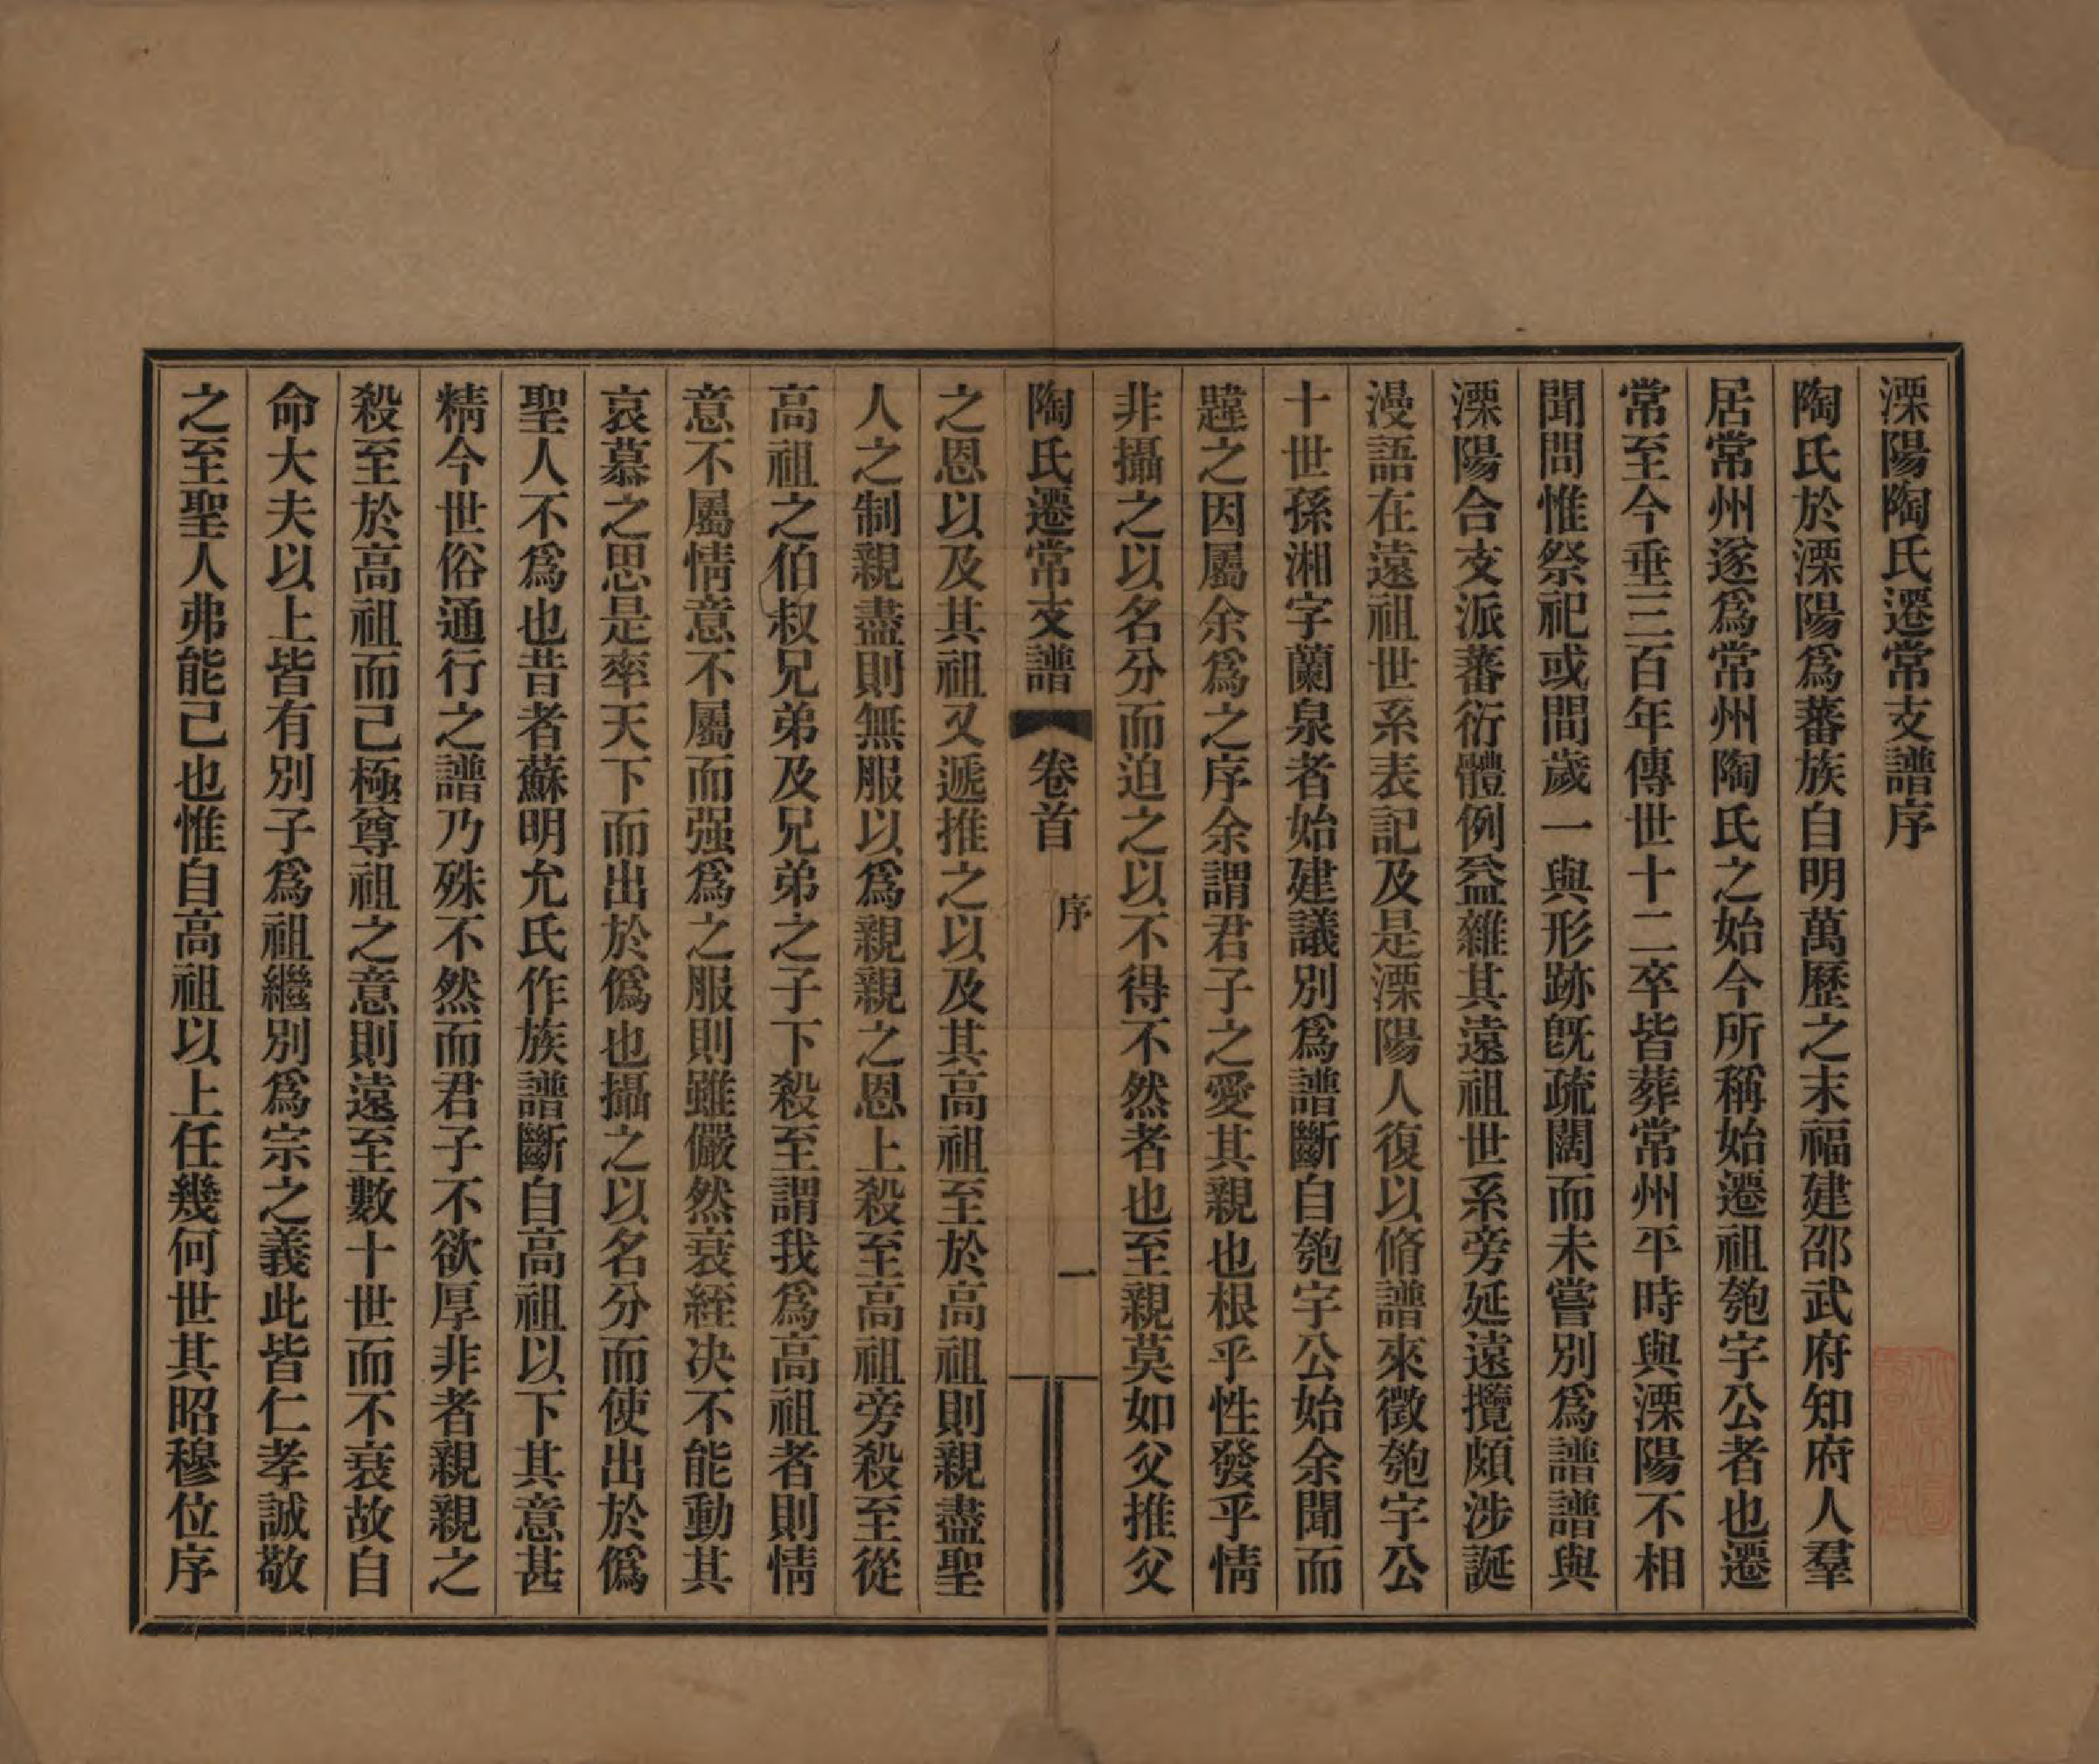 溧陽陶氏遷常支譜序
陶氏於溧陽爲蕃族自明萬歷之末福建邵武府知府人羣
居常州遂爲常州陶氏之始今所稱始遷祖匏宇公者也遷
常至今垂三百年傳世十二卒皆葬常州平時與溧陽不相
聞問惟祭祀或間歲一與形跡旣疏闊而未嘗別爲譜譜與
溧陽合支派蕃衍體例益雜其遠祖世系旁延遠攬頗涉誕
漫語在遠祖世系表記及是溧陽人復以脩譜來徵匏宇公
十世孫湘字蘭泉者始建議別爲譜斷自匏宇公始余聞而
韙之因屬余爲之序余謂君子之愛其親也根乎性發乎情
非攝之以名分而迫之以不得不然者也至親莫如父推父
陶氏遷常支譜 卷首 序 一
之恩以及其祖又遞推之以及其高祖至於高祖則親盡聖
人之制親盡則無服以爲親親之恩上殺至高祖旁殺至從
高祖之伯叔兄弟及兄弟之子下殺至謂我爲高祖者則情
意不屬情意不屬而强爲之服則雖儼然衰絰决不能動其
哀慕之思是率天下而出於僞也攝之以名分而使出於僞
聖人不爲也昔者蘇明允氏作族譜斷自高祖以下其意甚
精今世俗通行之譜乃殊不然而君子不欲厚非者親親之
殺至於高祖而已極尊祖之意則遠至數十世而不衰故自
命大夫以上皆有別子爲祖繼別爲宗之義此皆仁孝誠敬
之至聖人弗能已也惟自高祖以上任幾何世其昭穆位序